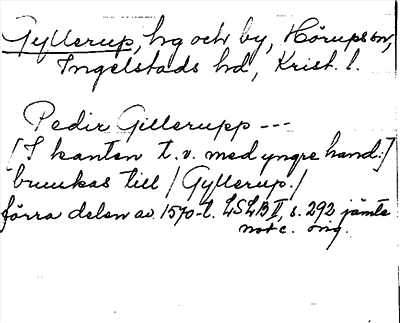 Gyllerup, hg och by, Hörups sn,
Ingelstads hd, Krist. l.
Pedir Gillerupp ---
[I kanten t. v. med yngre hand:]
bruukas till / Gyllerup. /
förra delen av 1570-t. LSLB II, s. 292 jämte
not c. orig.